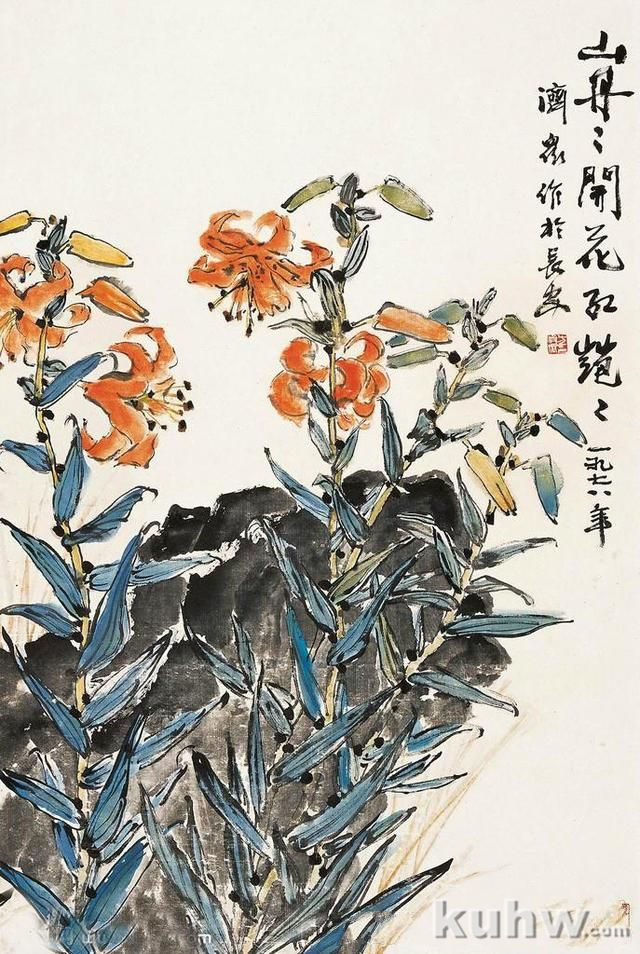 山丹〻開花红艷〻一九七八年
濟衆作於長安
kuhw.com